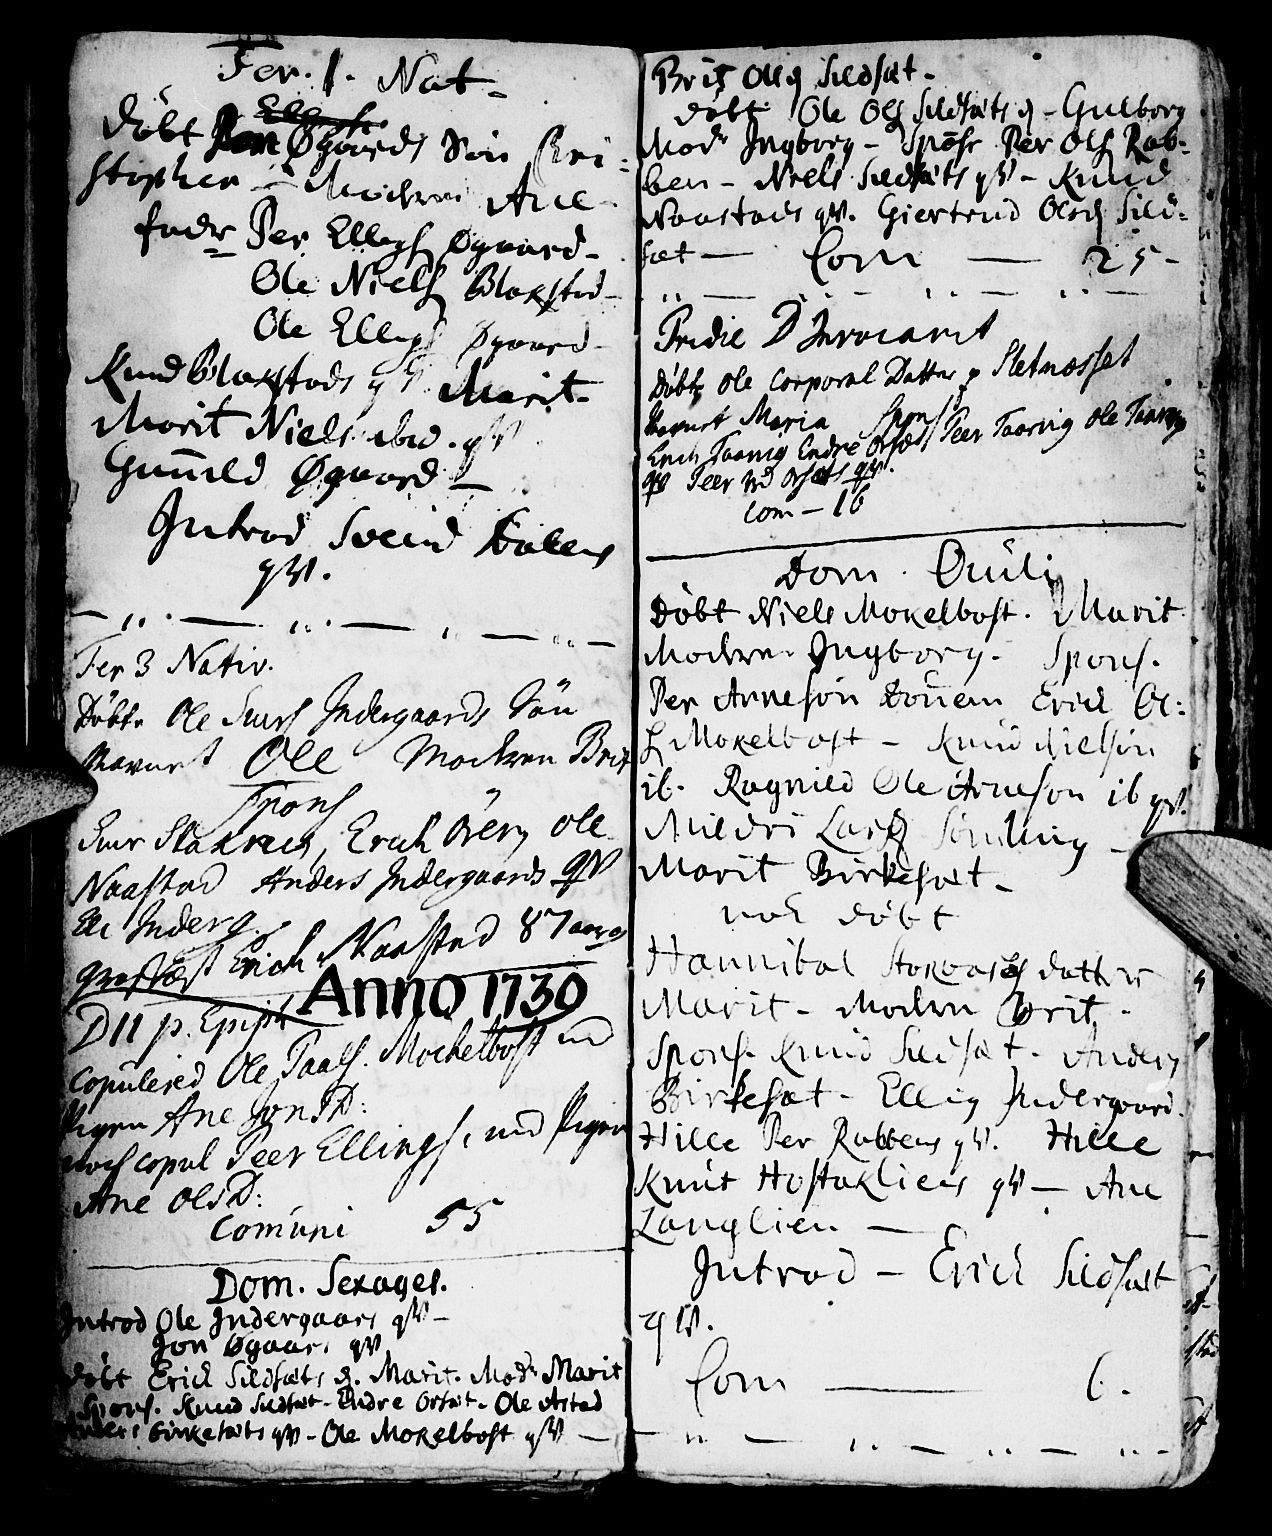 Fer. 1. Nat-
Døbt Øgaards Søn Kri-
stopher - Moderen Ane-
fadr Per Ellings Øgaard-
Ole Niels Blakstad-
Ole Ellings Øgaard-
Knud Blakstads qv. Marit-
Marit Niels ibid. qv
Guñild Øgaard-
Introd Svend Dalens
qv.
Fer 3 Nativ.
Døbt Ole Indergaards Søn
Navnet Ole Moderen Brit
Spons
Erich Ole
Naastad Anders Indergaards qv
Inderg.
Erich Naastad 87 aar
Anno 1739
D II p. Epiph
Copulered Ole Paals. Mochelbost
Pigen Ane Jonsd:
noch copul Peer Ellings, med Pigen
Ane Olsd:
Comuni 55
Dom. Sexages.
Introd Ole Indergaars qv-
Jon Øgaars qv
døbt Erich Sildsæts d. Marit. Modr Marit
Spons. Knud Sildsæt- Endre Orsæt- Ole Astad
Anders Birkesæts qv- Ole Mokelbost qv-
Brit Ols Sildsæt-
døbt Ole Ols Sildsæts d- Gulborg
Modr Ingborg- Spons Per Ols Rab-
ben- Niels Sildsæts qv- Knud
Naastads qv. Giertrud Olsd Sild-
sæt - Com - 25-
Pridie D Invocavit
Døbt Ole Corporal Datter Sletnæsset
Navnet Maria Spons
Erich Taarvig Endre Orsæt Peer Taarvig Ole Taarvig
qv Peer Orsæts qv.
Com - 16
Dom. Oculi
Døbt Niels Mokelbost. Marit
Moderen Ingborg. Spons.
Per Arnesøn Erich Ol:
Mokelbost - Knud Nielsøn
ib. Ragnild Ole Arneson ib qv.
Mildri Lars -
Marit Birkesæt-
nok døbt
Hannibal datter
Marit - Moderen Brit-
Spons. Knud Sildsæt- Anders
Birkesæt- Elling Indergaard.
Hille Per Rabbens qv. Hille
Knut Hostakliens qv- Ane
Langlien -
Introd - Erich Sildsæt
qv.
Com - 6.